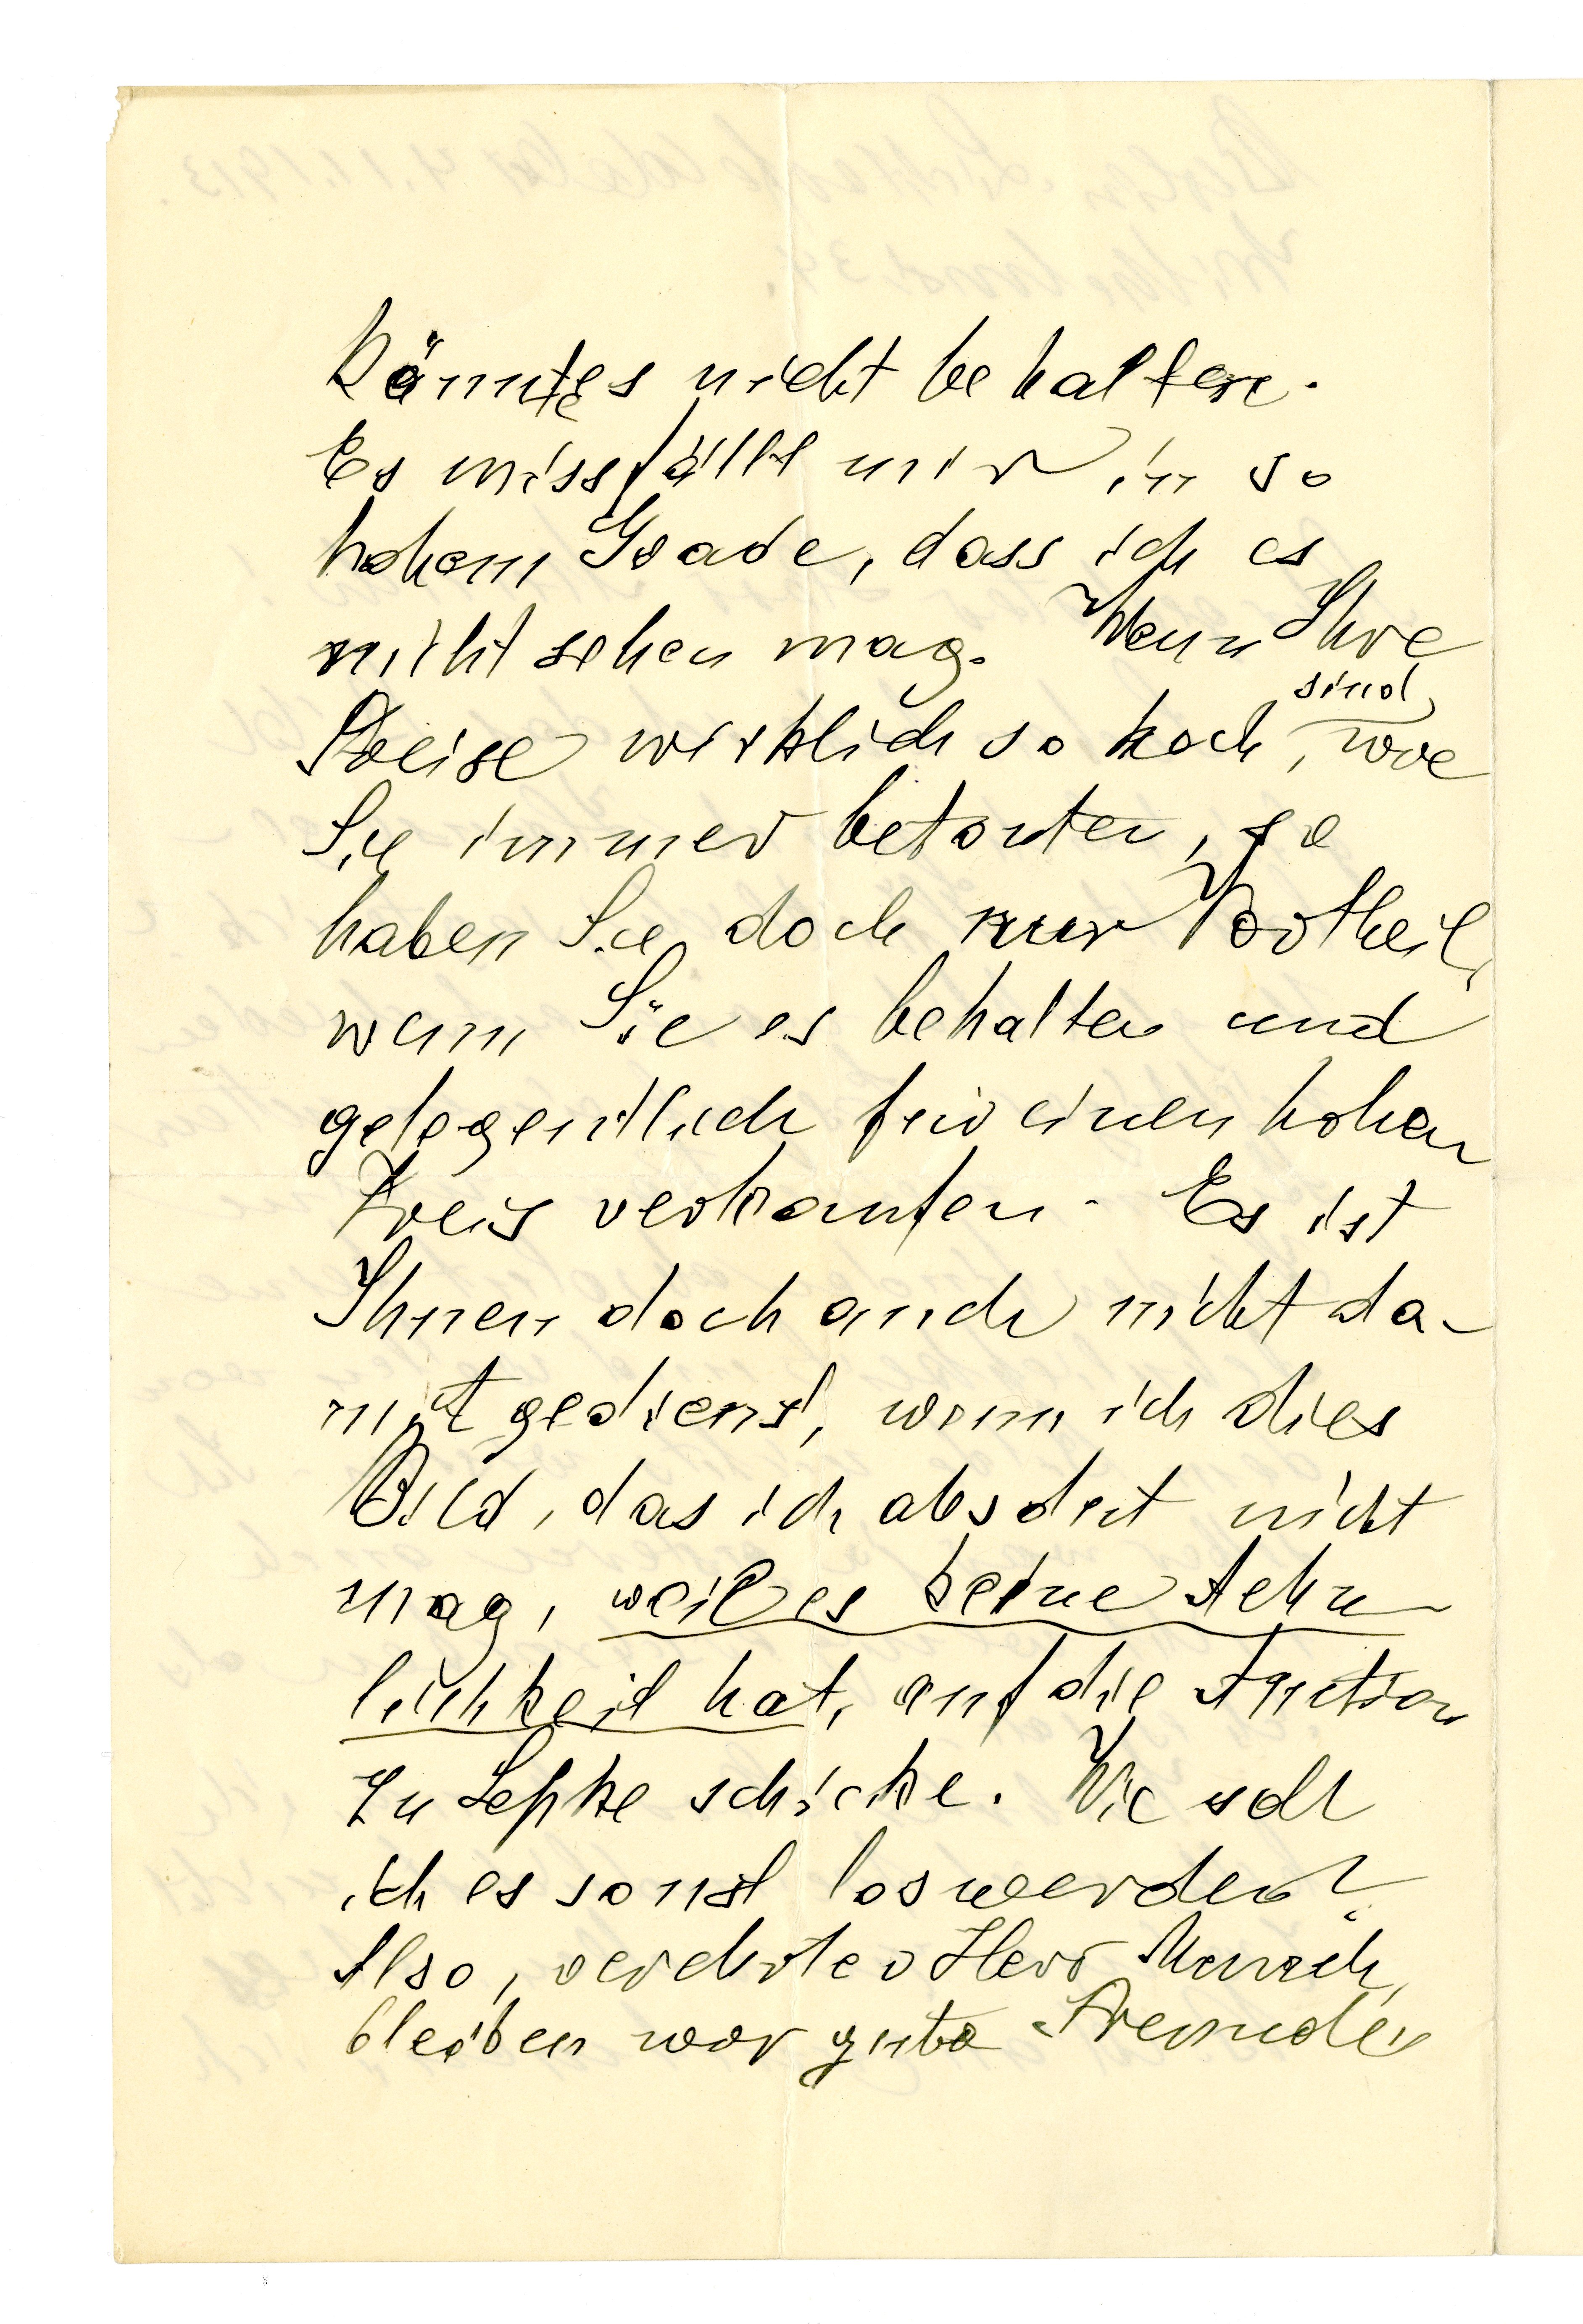 könnte es nicht behalten.
Es missfällt mir in so
hohem Grade, dass ich es
nicht sehen mag. Wenn Ihre
Preise wirklich so hoch sind, wie
Sie immer betonten, so
haben Sie doch nur Vortheil,
wenn Sie es behalten und
gelegentlich für einen hohen
Preis verkaufen. Es ist
Ihnen doch auch nicht da-
mit gedient, wenn ich dies
Bild, das ich absolut nicht
mag, weil es keine Aehn
lichkeit hat, auf die Auction
zu Lepke schicke. Wie soll
ich es sonst loswerden?
Also, verehrter Herr Munch,
bleiben wir gute Freunde